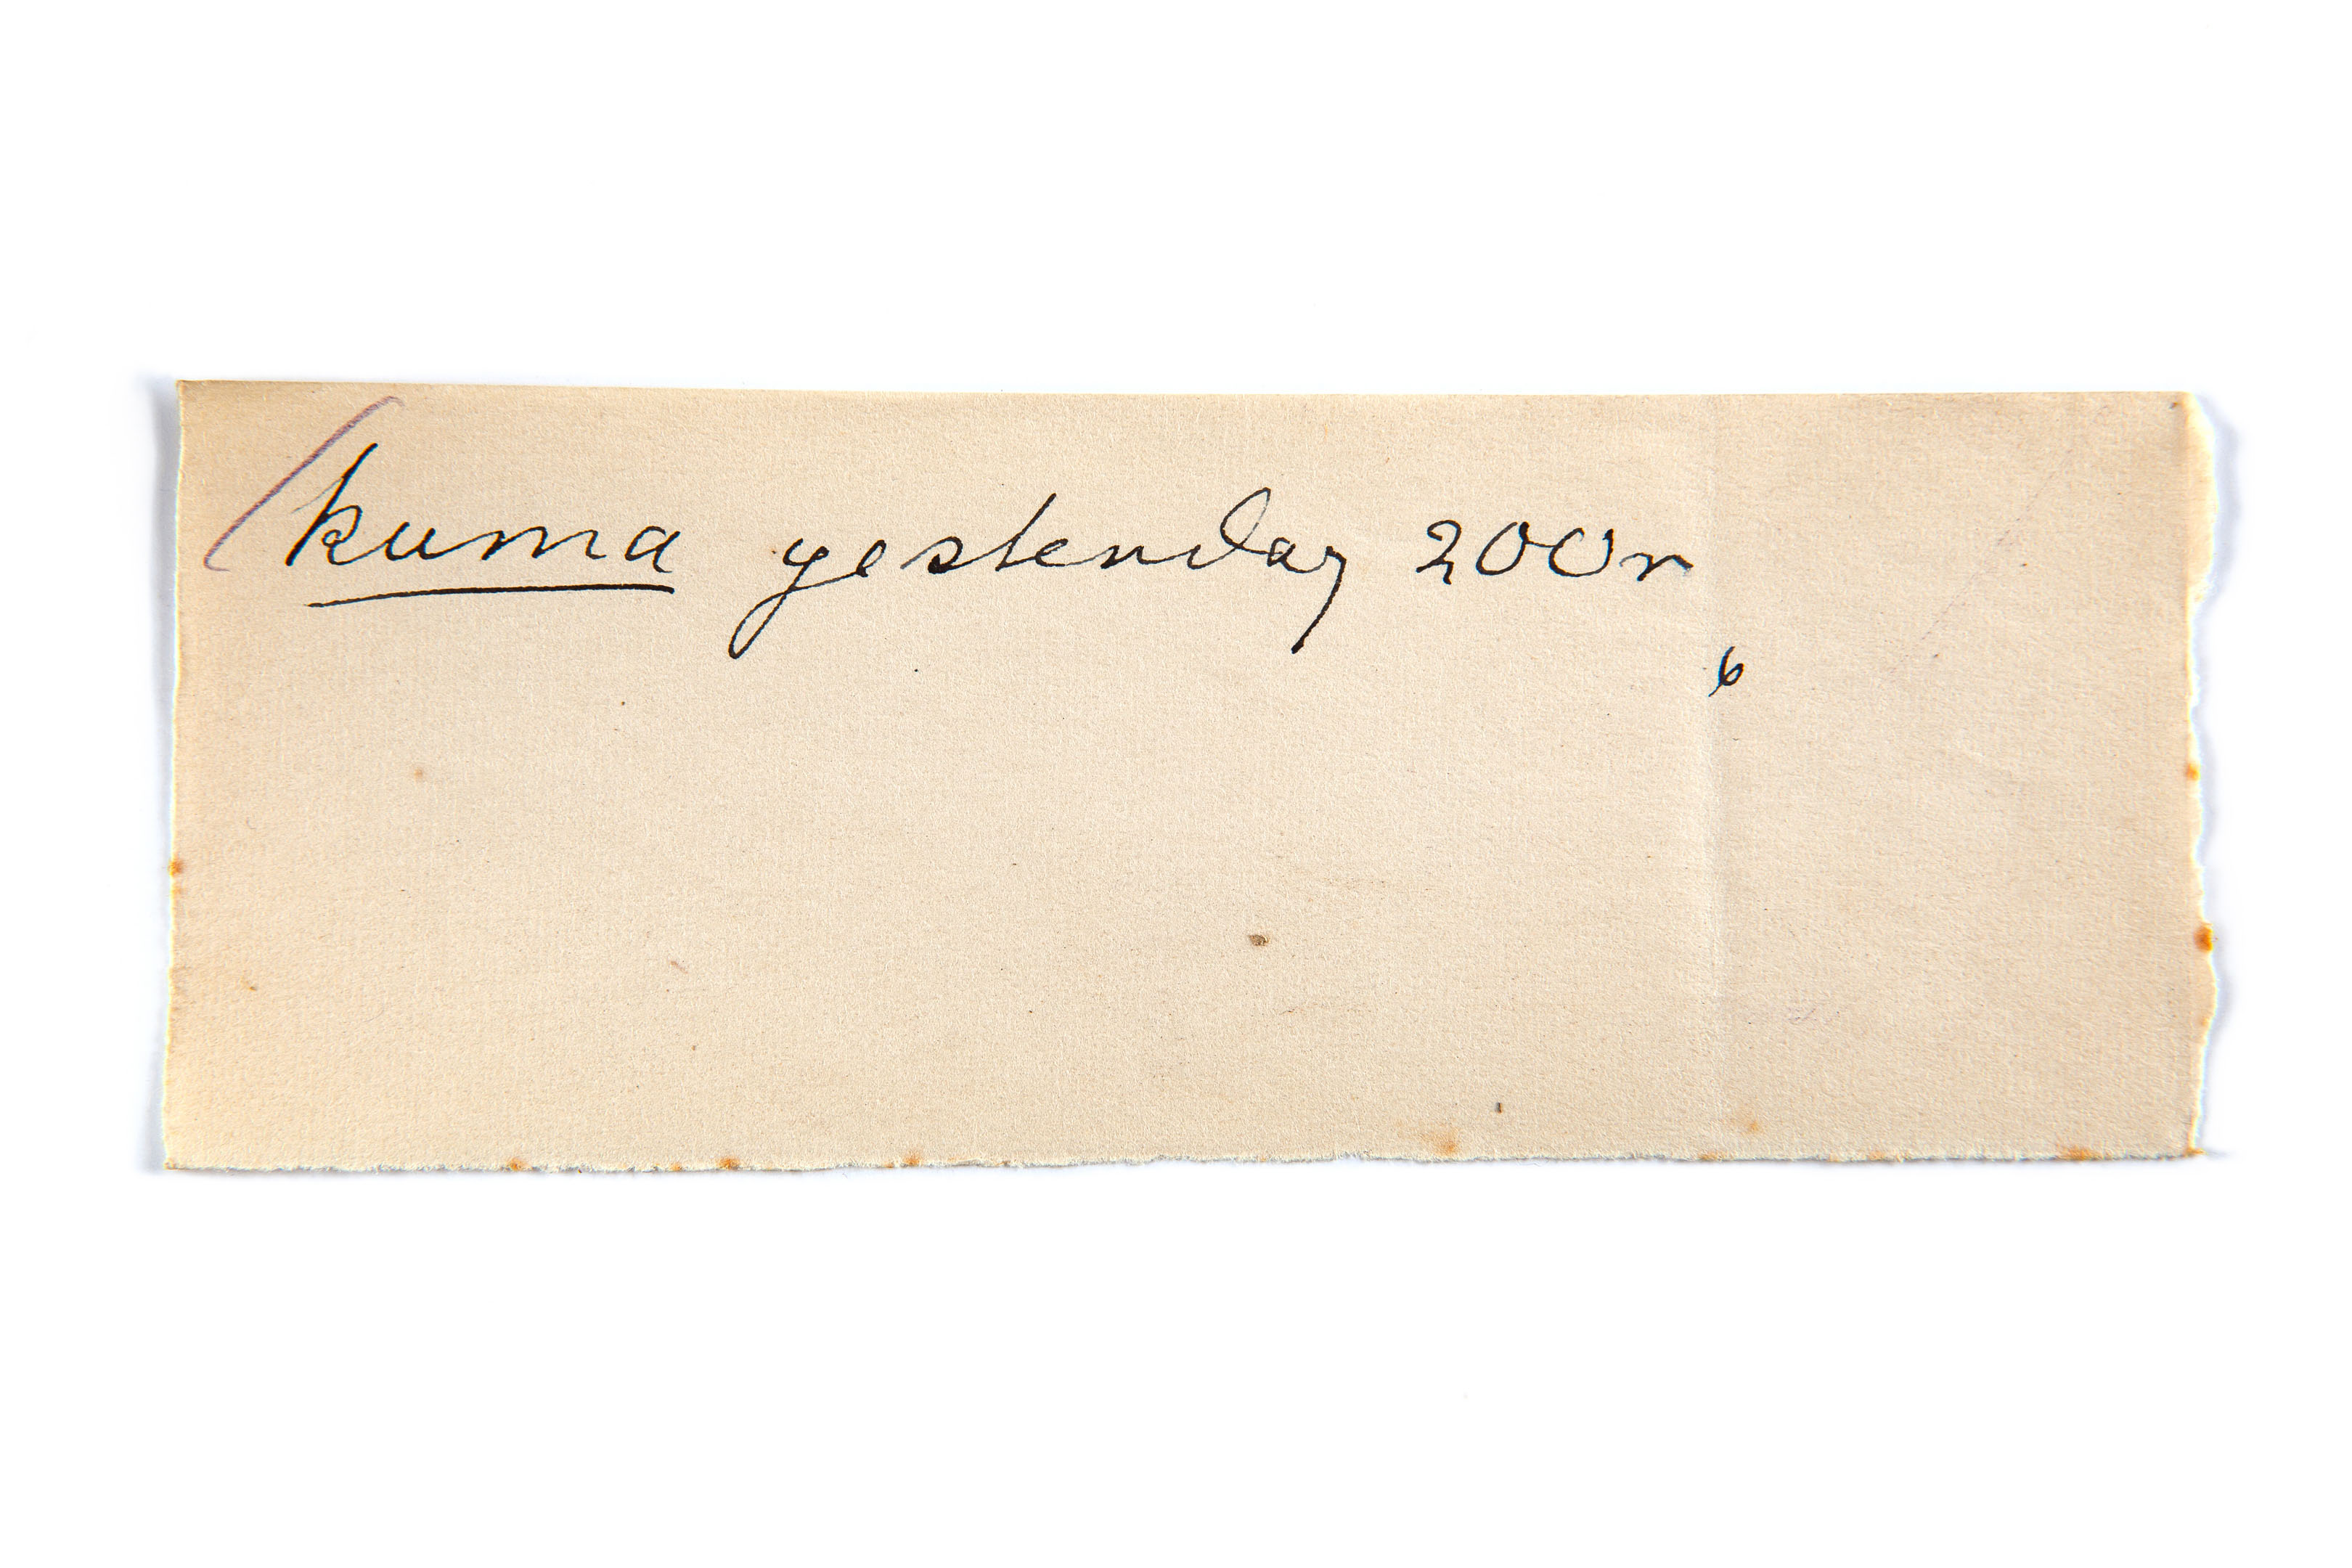 kuma yesterday 200r
6